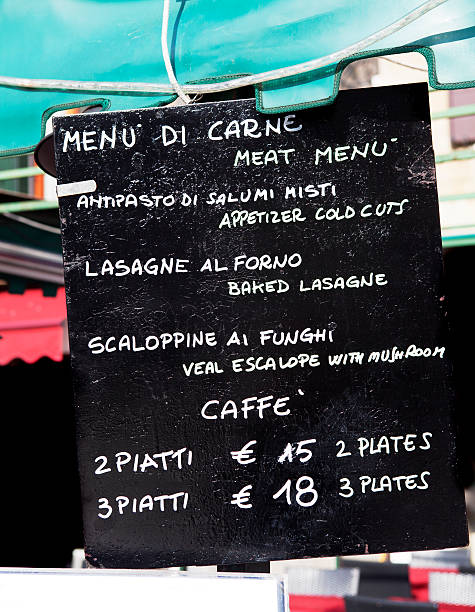 MENU' DI CARNE
MEAT MENU'
ANTIPASTO DI SALUMI MISTI
APPETIZER COLD CUTS
LASAGNE AL FORNO
BAKED LASAGNE
SCALOPPINE AI FUNGHI
VEAL ESCALOPE WITH MUSHROOM
CAFFE'
2 PIATTI € 15 2 PLATES
3 PIATTI € 18 3 PLATES